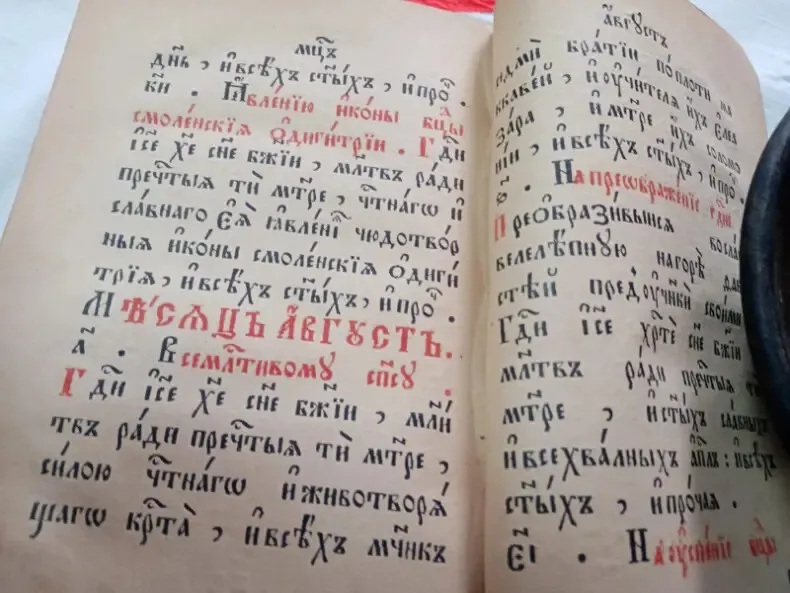 мц҃ъ
дн҃ь , и҆всѣ́хъ ст҃ы́хъ , и҆про́ .
к҃и . Ꙗ҆вле́нїю и҆ко́ны бц҃ы
смоле́нскїѧ ѻ҆диги́трїи . Гдⷭ҇и
і҆с҃е х҃е сн҃е бж҃їи , мл҃твъ ра́ди
преч҇тыѧ тѝ мт҃ре , ч҇тна́гѡ и҆
сла́внаго є҆ѧ̀ ꙗ҆вле́нїѧ чюдотво́р
ныѧ и҆ко́ны смоле́нскїѧ ѻ҆диги́
трїѧ , и҆всѣ́хъ ст҃ы́хъ , и҆про́ .
Мѣ́сѧцъ а҆́вгустъ .
а҃ . Всемл҇тивому сп҃су .
Гдⷭ҇и і҆с҃е х҃е сн҃е бж҃їи , мл҃и
твъ ра́ди преч҇тыѧ тѝ мт҃ре ,
си́лою ч҇тна́гѡ и҆животворѧ́
щагѡ крⷭ҇та̀ , и҆всѣ́хъ мч҃нкъ
а҆́вгустъ
седмѝ бра́тїи поплоти ма
ккавѣ́й , и҆ѹчи́телѧ и҆́хъ є҆леа
за́ра , и҆мт҃ре и҆́хъ соломо
ні́и , и҆всѣ́хъ ст҃ы́хъ , и҆про́
ѕ҃ . Напреѡбраже́нїе гдⷭ҇не
Преѻбрази́выисѧ восла́
велелѣ́пную , нагорѣ̀
сте́й предѹ҆чн҃ки̑ свои́ми
Гдⷭ҇и і҆с҃е хрⷭ҇тѐ сн҃е бж҃їи
мл҃твъ ра́ди преч҇тыѧ
мт҃ре , и҆ст҃ы́хъ сла́вныхъ
и҆всехва́лныхъ а҆пл҃ъ : и҆всѣ́хъ
ст҃ы́хъ , и҆про́чая .
є҃і . Наѹ҆спе́нїе